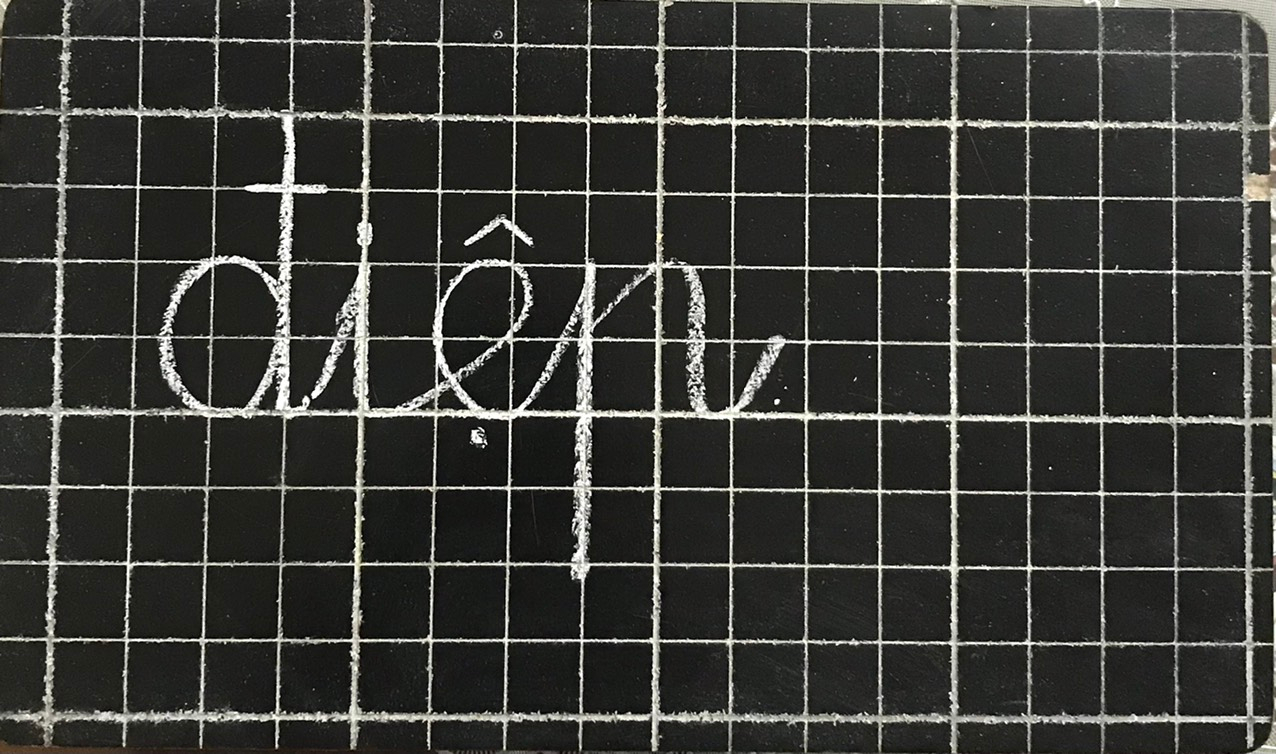 điệp